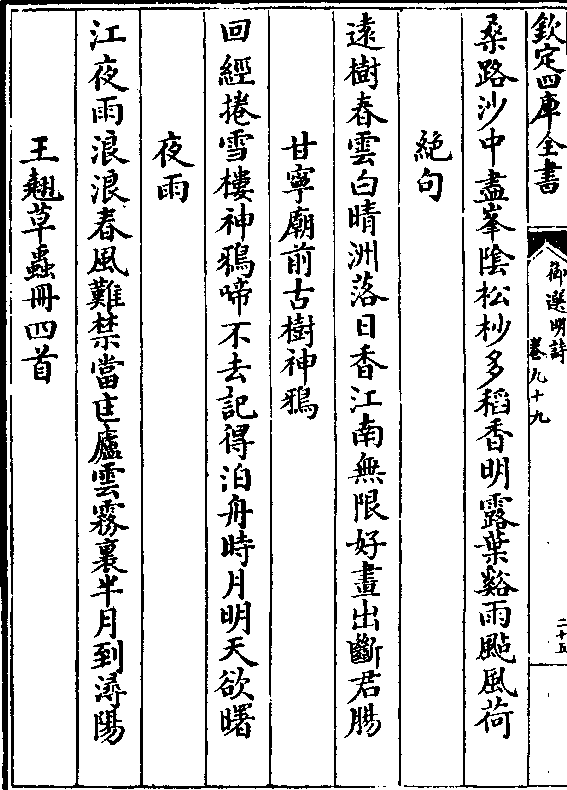 欽定四庫全書
御選明詩
卷九十九
二十五
桑路沙中盡峯陰松杪多稻香明露葉谿雨颭風荷
絶句
遠樹春雲白晴洲落日香江南無限好畫出斷君腸
甘寧廟前古樹神鴉
回經捲雪樓神鴉啼不去記得泊舟時月明天欲曙
夜雨
江夜雨浪浪春風難禁當匡廬雲霧裏半月到潯陽
王翹草蟲冊四首